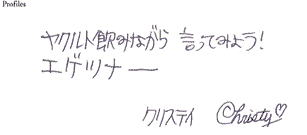 Profiles
ヤクルト飲みながら 言ってみよう!
エゲツナー
クリスティ Christy♡